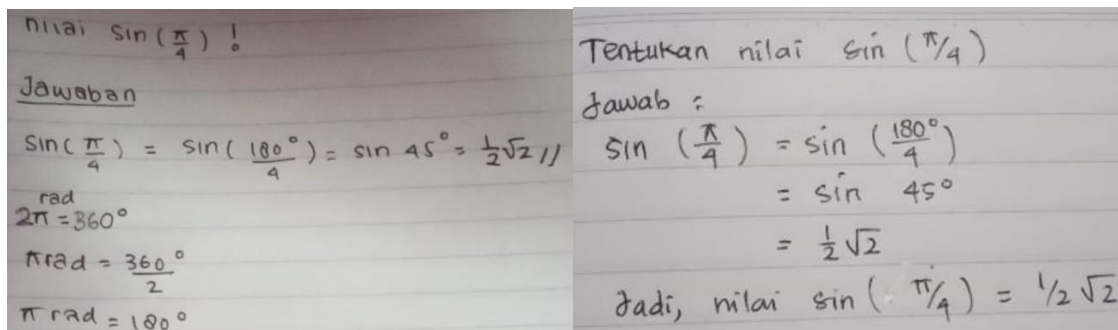 nilai sin(π/4) !
Jawaban
sin(π/4) = sin(180°/4) = sin 45° = 1/2√2 //
2π rad = 360°
π rad = 360°/2
π rad = 180°
Tentukan nilai sin (π/4)
Jawab :
sin (π/4) = sin (180°/4)
= sin 45°
= 1/2 √2
Jadi, nilai sin (π/4) = 1/2 √2